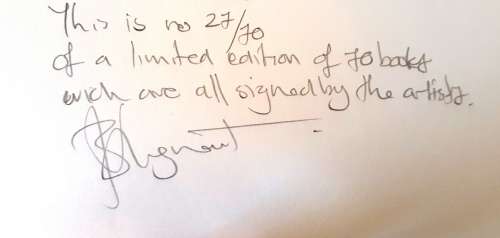 This is no 27/70
of a limited edition of 70 books
wich are all signed by the artists.